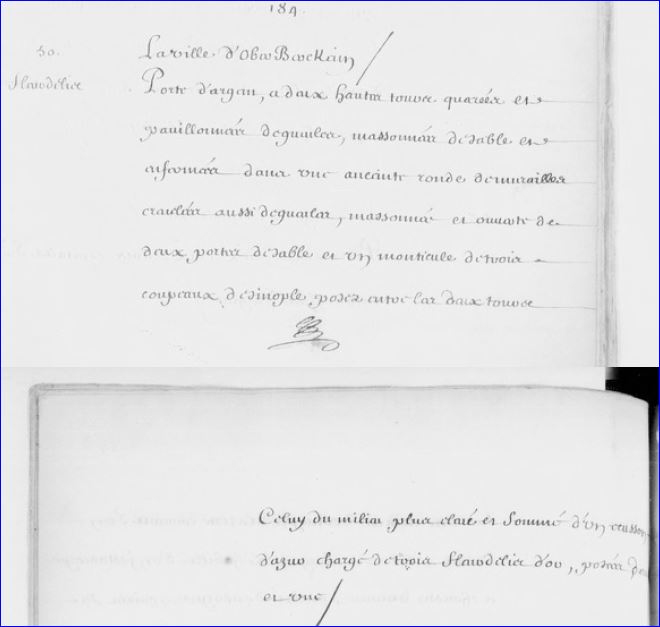 184.
50.
fleurdelisé
La ville d'Ober Berckein
Porte d'argent, a deux hautes tours quarées et
pavillonnées de gueules, massonnées de sable et
enfermées dans une enceinte ronde de murailles
crenelées aussi de gueules, massonné et ouverte de
deux portes de sable et un monticule de trois
coupeaux de sinople posez entre les deux tours
Celuy du milieu plus elevé et sommé d'un ecusson
d'azur chargé de trois fleurdelis d'or, posées deux
et une